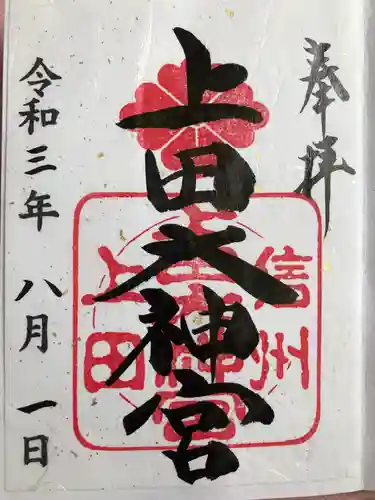 奉拝
上田大神宮
信州
上田
令和三年 八月 一日